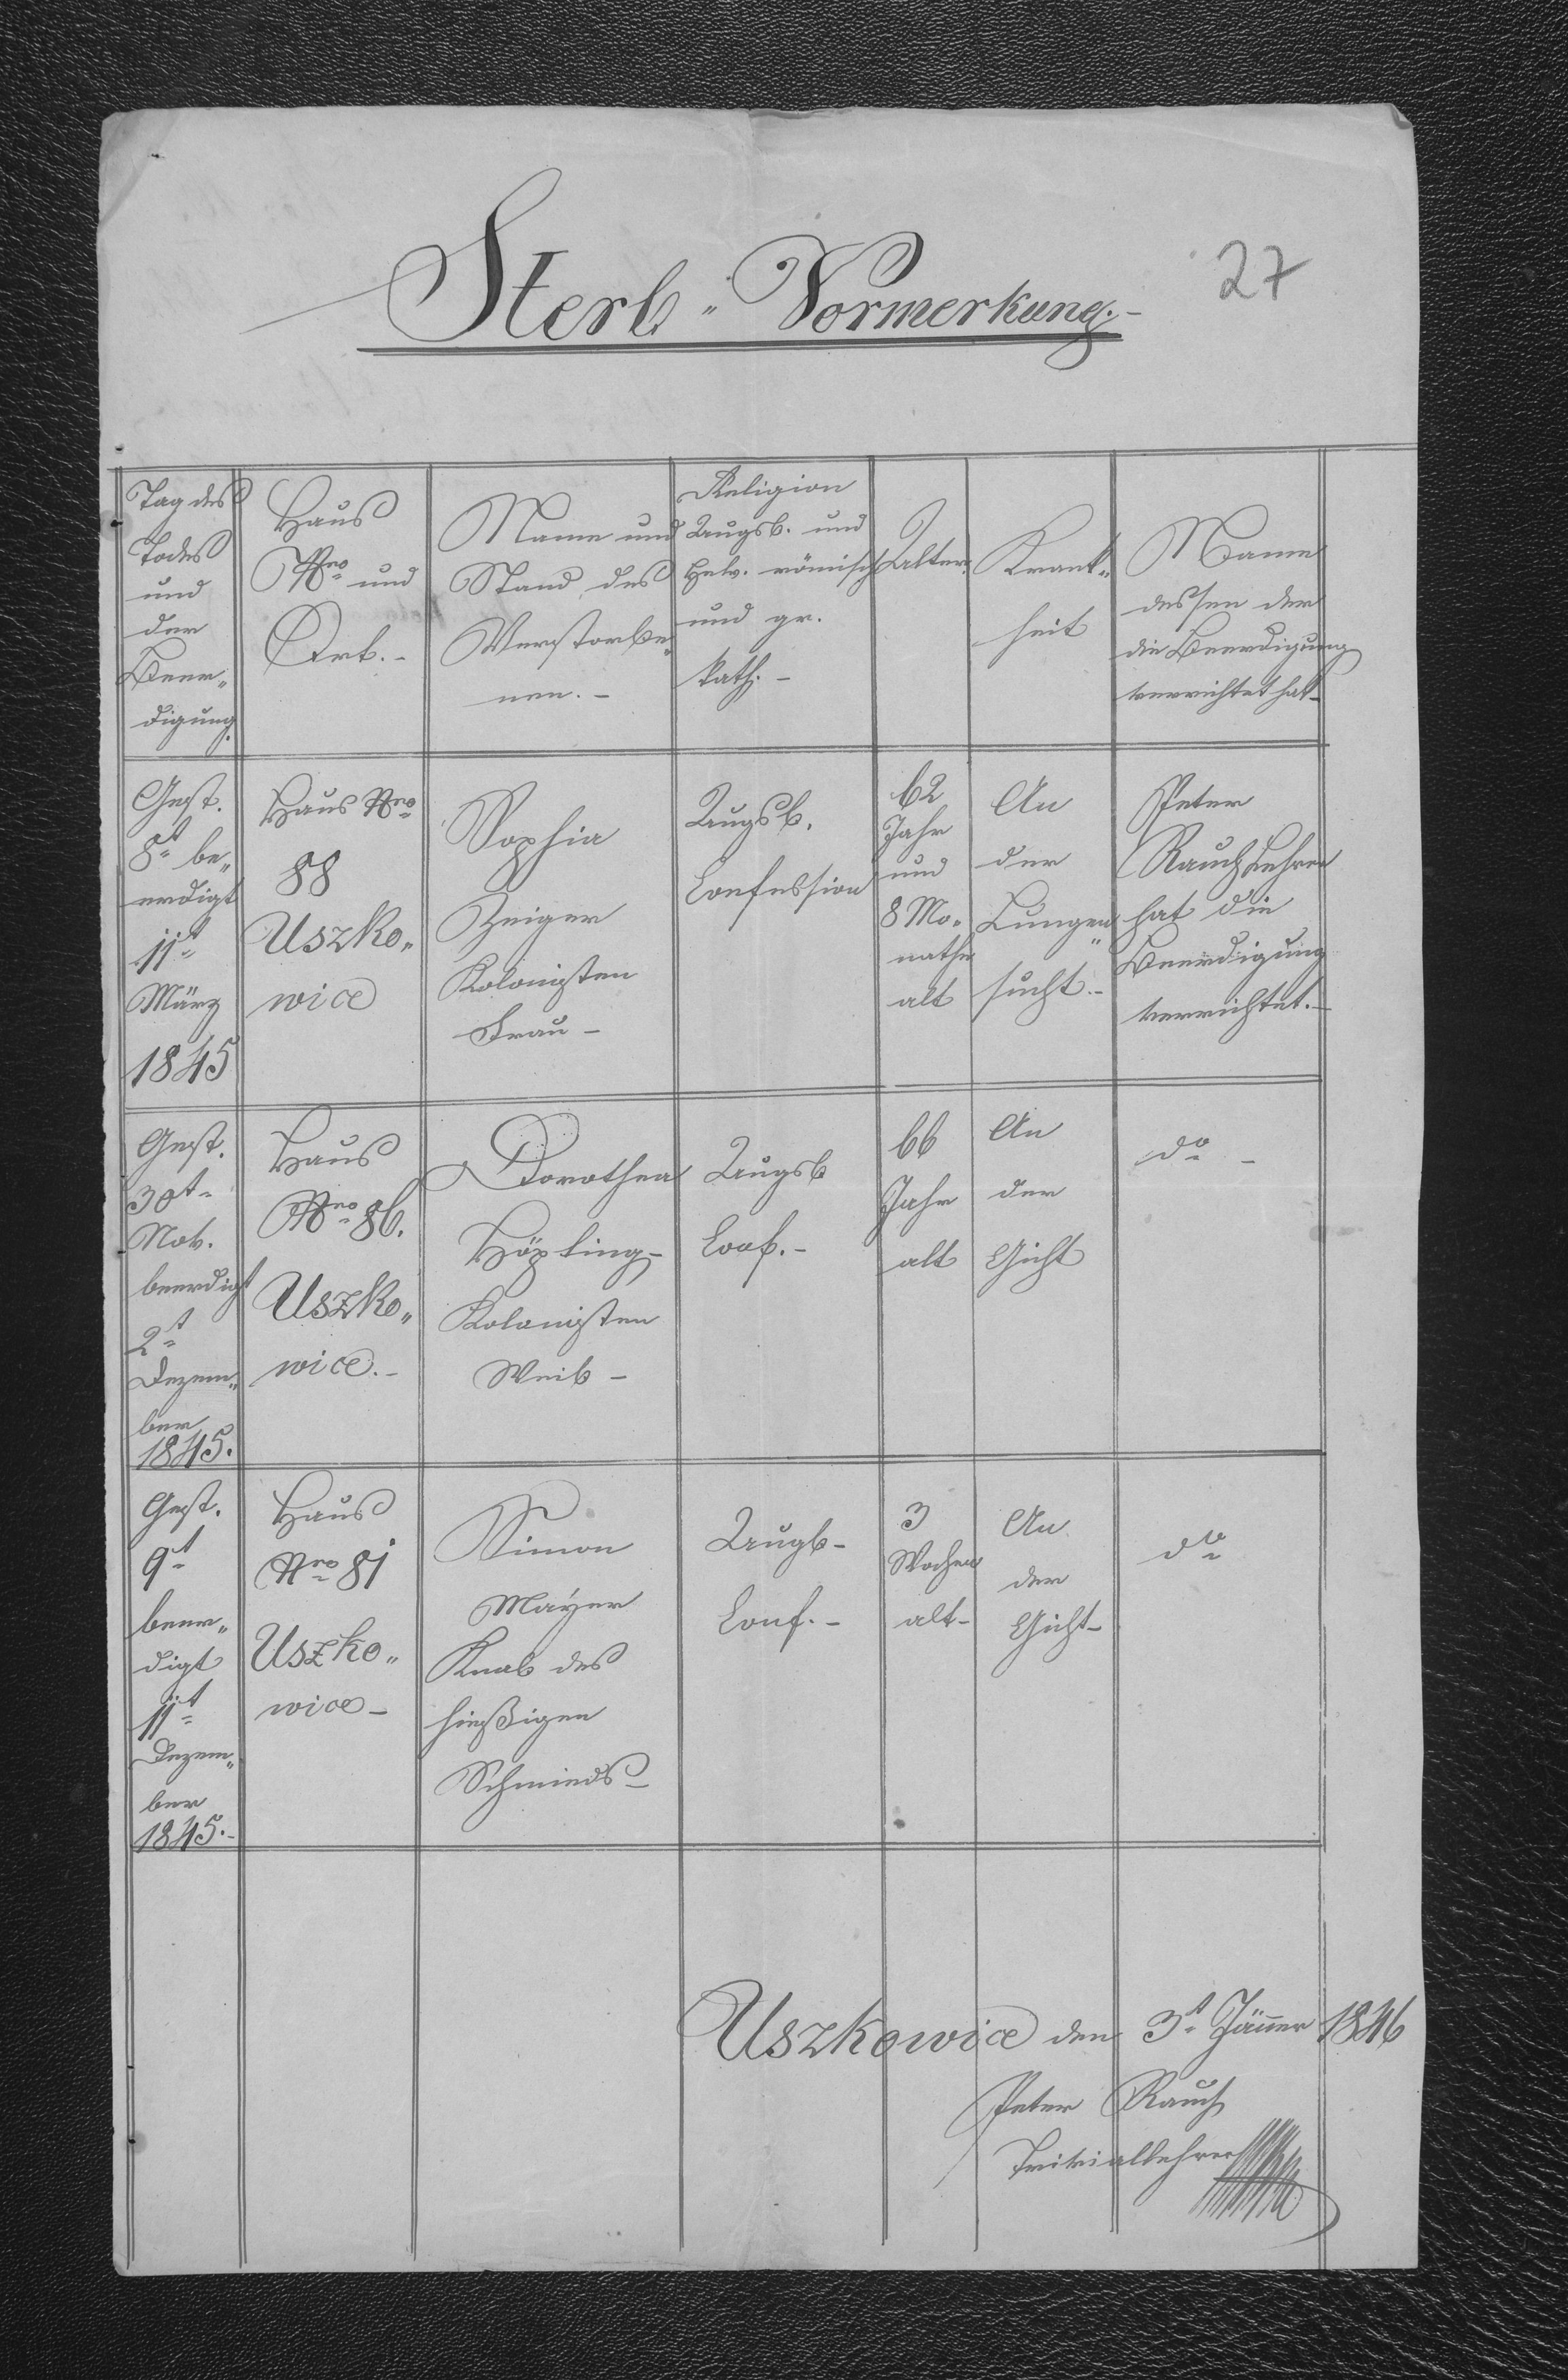 Sterb„Vormerkung.-
27
Tag des
Todes
und
der
Beer„
digung.
Haus
Nro und
Ort.-
Name und
Stand des
Verstorbe„
nen.-
Religion
Augsb. und
Helv. römisch
und gr.
kath.-
Alter.
Krank„
heit
Name
dessen der
die Beerdigung
verrichtet hat-
Gest.
8t be„
erdigt
11t
März
1845
Haus Nro
88
Uszko„
wice
Sophia
Zeiger
Kolonisten
Frau-
Augsb.
Confession
62
Jahr
und
8 Mo„
nathe
alt
An
der
Lungen„
sucht.-
Peter
Rauch Lehrer
hat die
Beerdigung
verrichtet.-
Gest.
30t
Nov.
beerdigt
2t
Dezem„
ber
1845.
Haus
Nro 86.
Uszko„
wice.-
Dorothea
Höpling-
Kolonisten
Weib-
Augsb
Conf.-
66
Jahr
alt
An
der
Gicht
do-
Gest.
9t
beer„
digt
11t
Dezem„
ber
1845.-
Haus
Nro 81
Uszko„
wice-
Simon
Mayer
Knab des
hießigen
Schmieds-
Augb-
Conf.-
3
Wochen
alt-
An
der
Gicht-
do
Uszkowice den 3t Jänner 1846
Peter Rauch
Triviallehrer